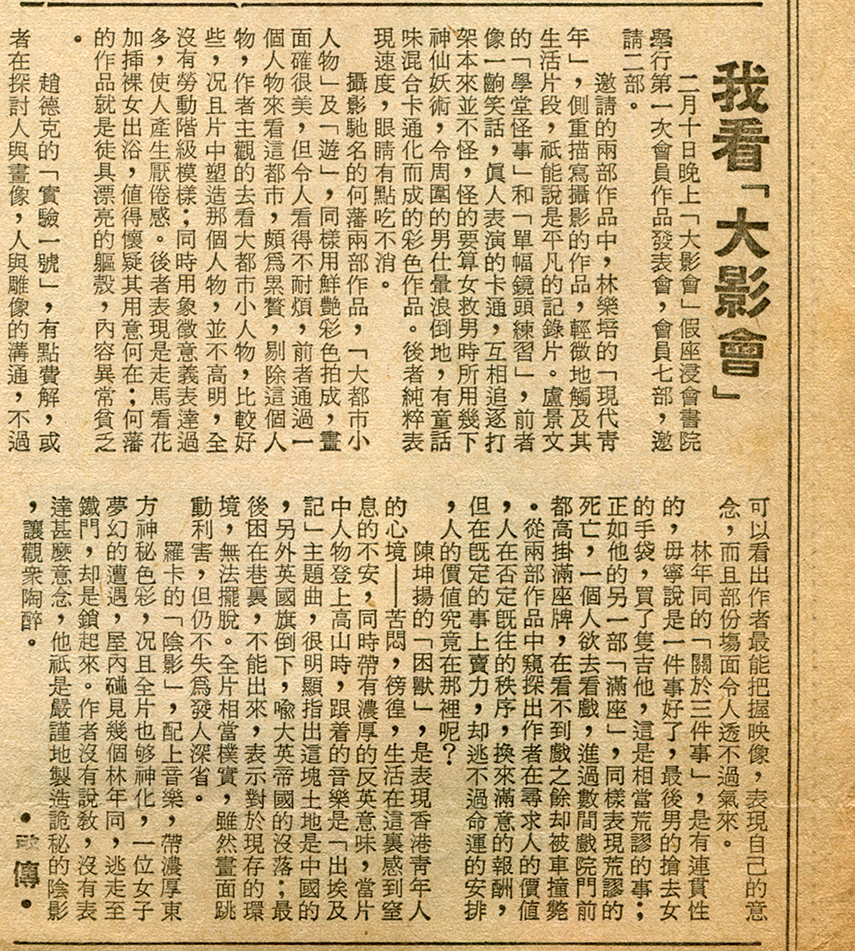 我看「大影會」
二月十日晚上「大影會」假座浸會書院
舉行第一次會員作品發表會，會員七部，邀
請二部。
邀請的兩部作品中，林樂培的「現代青
年」，側重描寫攝影的作品，輕微地觸及其
生活片段，祇能說是平凡的記錄片。盧景文
的「學堂怪事」和「單幅鏡頭練習」，前者
像一齣笑話，眞人表演的卡通，互相追逐打
架本來並不怪，怪的要算女救男時所用幾下
神仙妖術，令周圍的男仕暈浪倒地，有童話
味混合卡通化而成的彩色作品。後者純粹表
現速度，眼睛有點吃不消。
攝影馳名的何藩兩部作品，「大都市小
人物」及「遊」，同樣用鮮艷彩色拍成，畫
面確很美，但令人看得不耐煩，前者通過一
個人物來看這都市，頗爲累贅，剔除這個人
物，作者主觀的去看大都市小人物，比較好
些，况且片中塑造那個人物，並不高明，全
沒有勞動階級模樣；同時用象徵意義表達過
多，使人產生厭倦感。後者表現是走馬看花
加揷裸女出浴，值得懷疑其用意何在；何藩
的作品就是徒具漂亮的軀殼，內容異常貧乏
。
趙德克的「實驗一號」，有點費解，或
者在探討人與畫像，人與雕像的溝通，不過
可以看出作者最能把握映像，表現自己的意
念，而且部份塲面令人透不過氣來。
林年同的「關於三件事」，是有連貫性
的，毋寧說是一件事好了，最後男的搶去女
的手袋，買了隻吉他，這是相當荒謬的事；
正如他的另一部「滿座」，同樣表現荒謬的
死亡，一個人欲去看戲，進過數間戲院門前
都高掛滿座牌，在看不到戲之餘却被車撞斃
。從兩部作品中窺探出作者在尋求人的價值
，人在否定旣往的秩序，換來滿意的報酬，
但在旣定的事上賣力，却逃不過命運的安排
，人的價值究竟在那裡呢？
陳坤揚的「困獸」，是表現香港青年人
的心境——苦悶，徬徨，生活在這裏感到窒
息的不安，同時帶有濃厚的反英意味，當片
中人物登上高山時，跟着的音樂是「出埃及
記」主題曲，很明顯指出這塊土地是中國的
，另外英國旗倒下，喩大英帝國的沒落；最
後困在巷裏，不能出來，表示對於現存的環
境，無法擺脫。全片相當樸實，雖然畫面跳
動利害，但仍不失爲發人深省。
羅卡的「陰影」，配上音樂，帶濃厚東
方神秘色彩，況且全片也够神化，一位女子
夢幻的遭遇，屋內碰見幾個林年同，逃走至
鐵門，却是鎖起來。作者沒有說敎，沒有表
達甚麽意念，他祇是嚴謹地製造詭秘的陰影
，讓觀衆陶醉。
•傳•